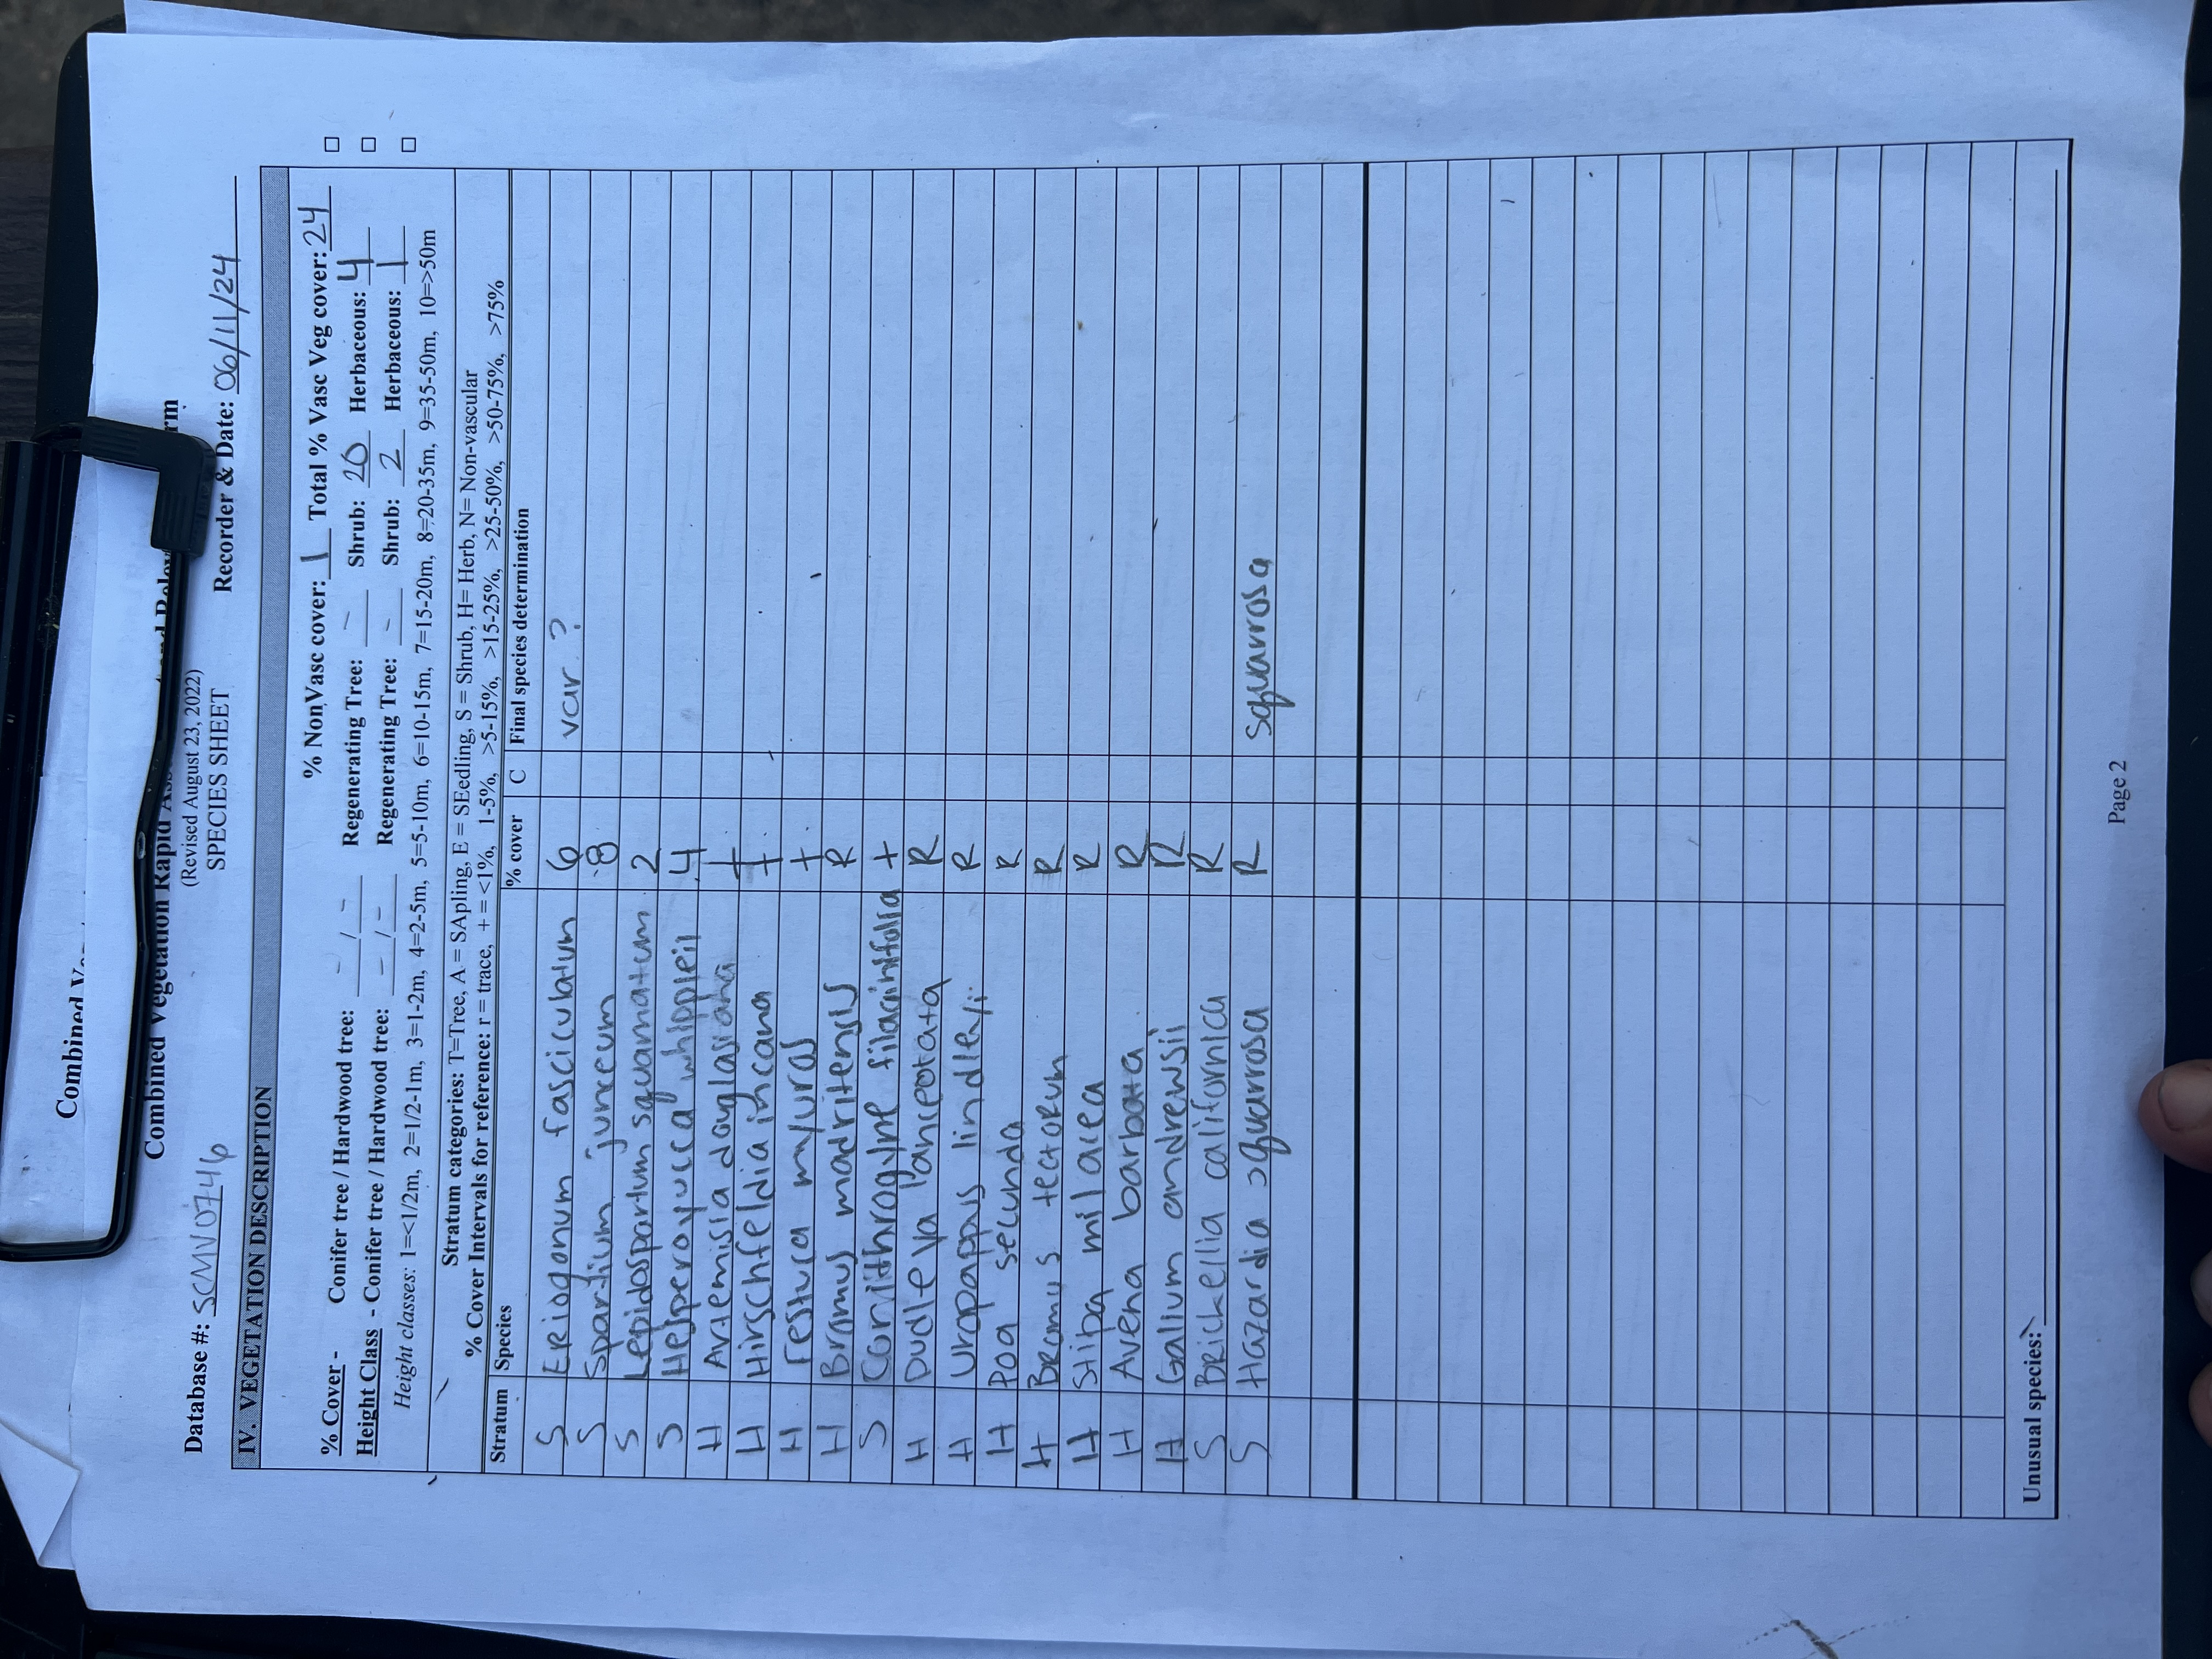 Combined Ve
Combined Vegetation Rapid Ass and Relev rm
(Revised August 23, 2022)
SPECIES SHEET
Database #: SCMV0746 Recorder & Date: 06/11/24
IV. VEGETATION DESCRIPTION
% NonVasc cover: 1 Total % Vasc Veg cover: 24
% Cover - Conifer tree / Hardwood tree: - / - Regenerating Tree: - Shrub: 20 Herbaceous: 4
Height Class - Conifer tree / Hardwood tree: - / - Regenerating Tree: - Shrub: 2 Herbaceous: 1
Height classes: 1=<1/2m, 2=1/2-1m, 3=1-2m, 4=2-5m, 5=5-10m, 6=10-15m, 7=15-20m, 8=20-35m, 9=35-50m, 10=>50m
Stratum categories: T=Tree, A = SApling, E = SEedling, S = Shrub, H= Herb, N= Non-vascular
% Cover Intervals for reference: r = trace, + = <1%, 1-5%, >5-15%, >15-25%, >25-50%, >50-75%, >75%
Stratum Species % cover C Final species determination
S Eriogonum fasciculatum 6 var.?
S Spartium junceum 8
S Lepidospartum squamatum 2
S Hesperoyucca whipplei 4
H Artemisia douglasiana +
H Hirschfeldia incana +
H Festuca myuros +
H Bromus madritensis R
S Corrithrogyne filaginifolia +
H Dudleya lanceolata R
H Uropappus lindleyi R
H Poa secunda R
H Bromus tectorum R
H Stipa milacea R
H Avena barbata R
H Galium andrewsii R
S Brickellia californica R
S Hazardia squarrosa R squarrosa
Unusual species:
Page 2